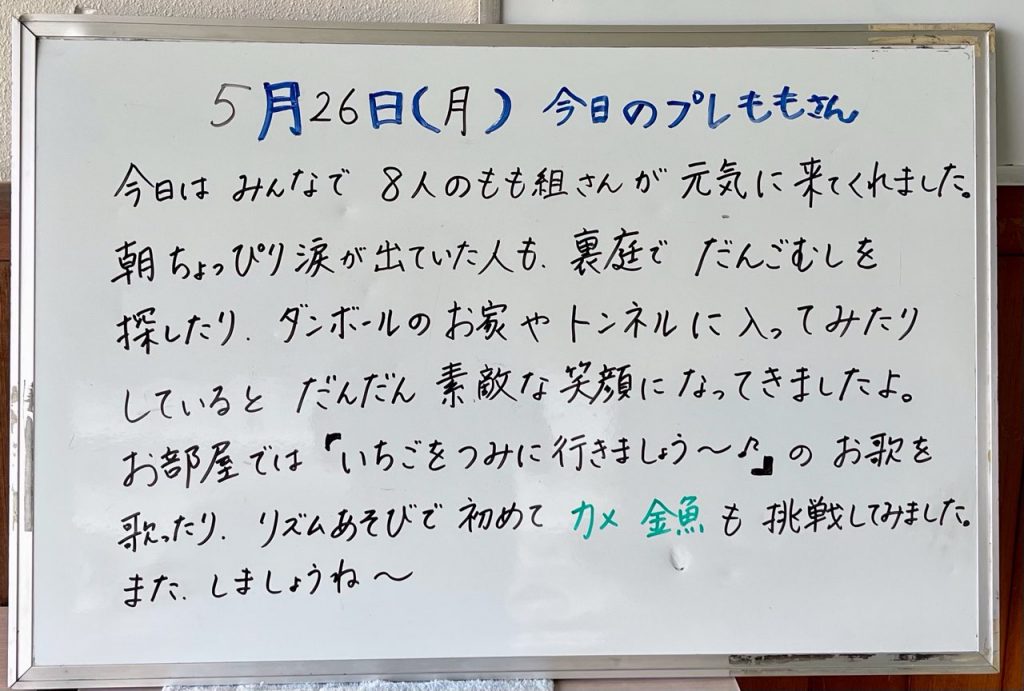 5月26日(月) 今日のプレももさん
今日は みんなで 8人のもも組さんが 元気に来てくれました。
朝ちょっぴり涙が出ていた人も、裏庭で だんごむしを
探したり、ダンボールのお家やトンネルに入ってみたり
していると だんだん 素敵な笑顔になってきましたよ。
お部屋では『いちごをつみに行きましょう～♪』の お歌を
歌ったり、リズムあそびで 初めて カメ 金魚も 挑戦してみました。
また、しましょうね～